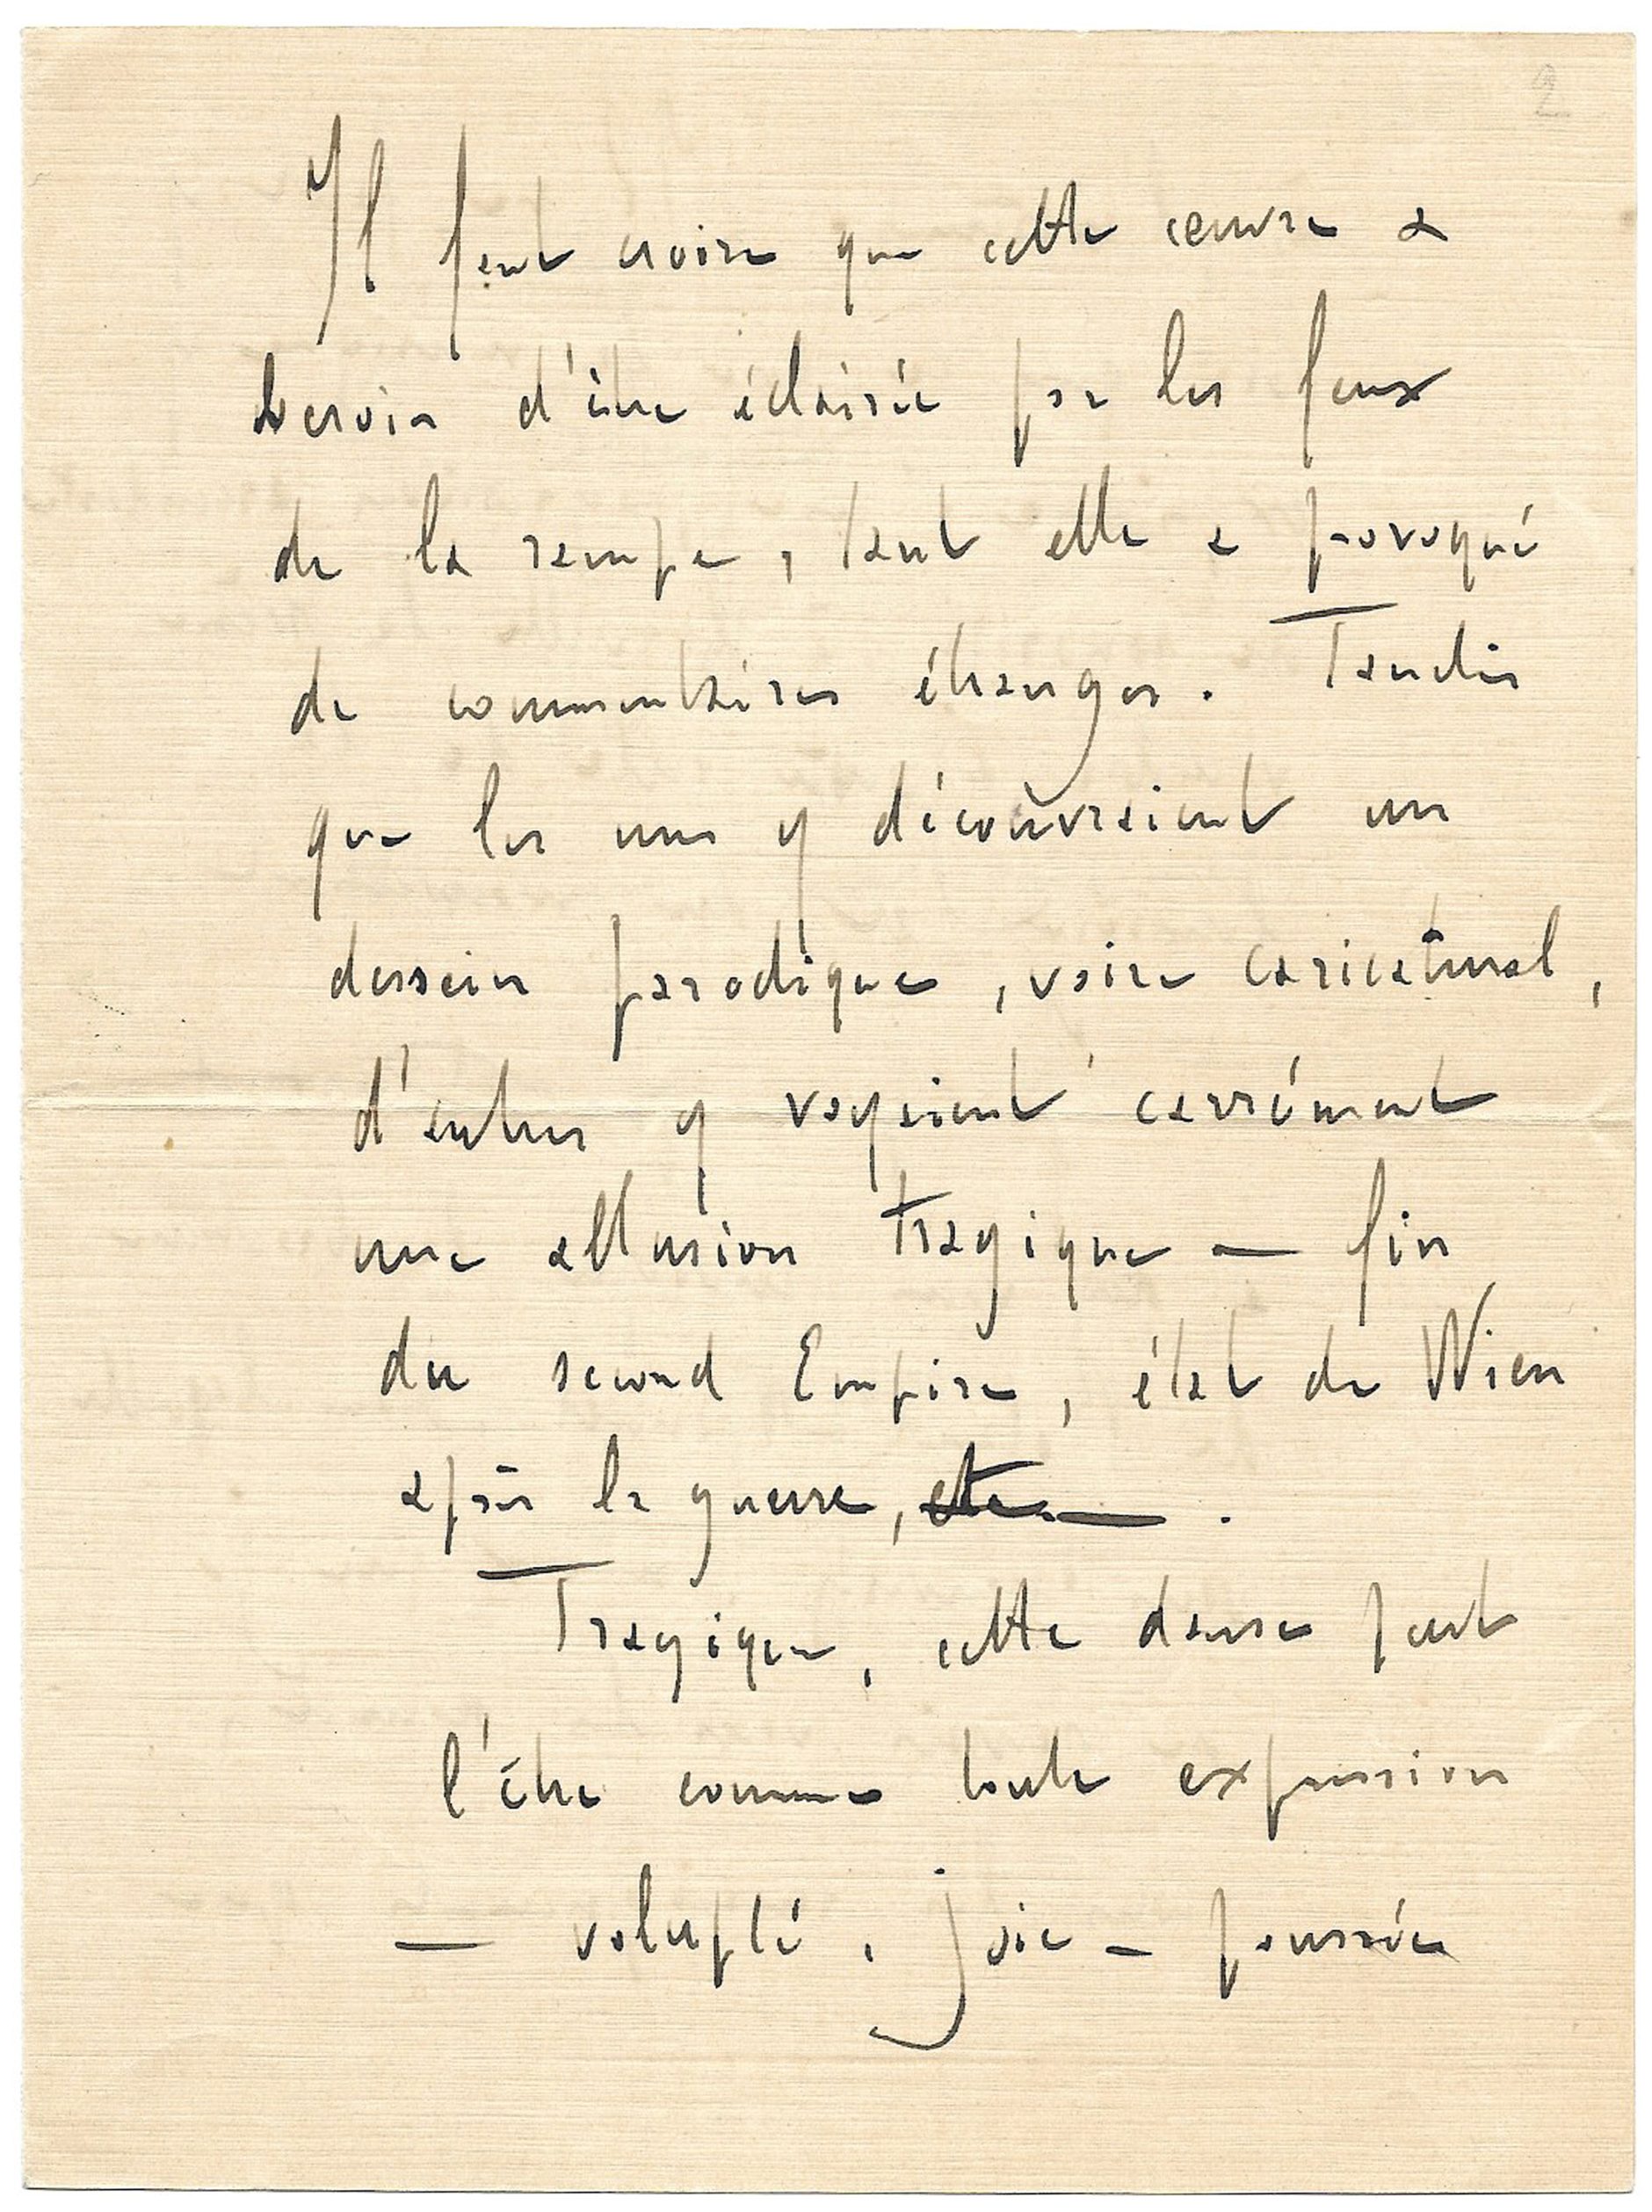 2
Il faut croire que cette œuvre a
besoin d'être éclairée par les feux
de la rampe, tant elle a provoqué
de commentaires étranges. Tandis
que les uns y découvraient un
dessein parodique, voire caricatural,
d'autres y voyaient carrément
une allusion tragique — fin
du second Empire, état de Wien
après la guerre, etc. — .
Tragique, cette danse peut
l'être comme toute expression
— volupté, joie — poussée